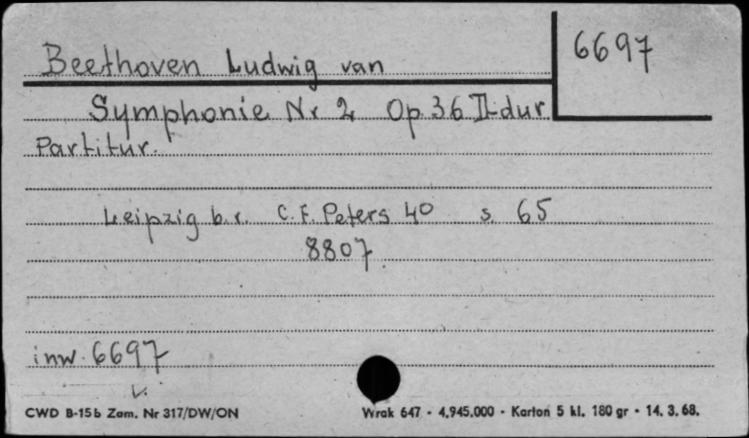 Beethoven Ludwig van
6697
Symphonie Nr 2 Op 36 D-dur
Partitur.
Leipzig b.r. C.F. Peters 40 s. 65
8807
inw. 6697
CWD B-15b Zam. Nr 317/DW/ON
Wrak 647 - 4,945.000 - Karton 5 kl. 180 gr - 14. 3. 68.